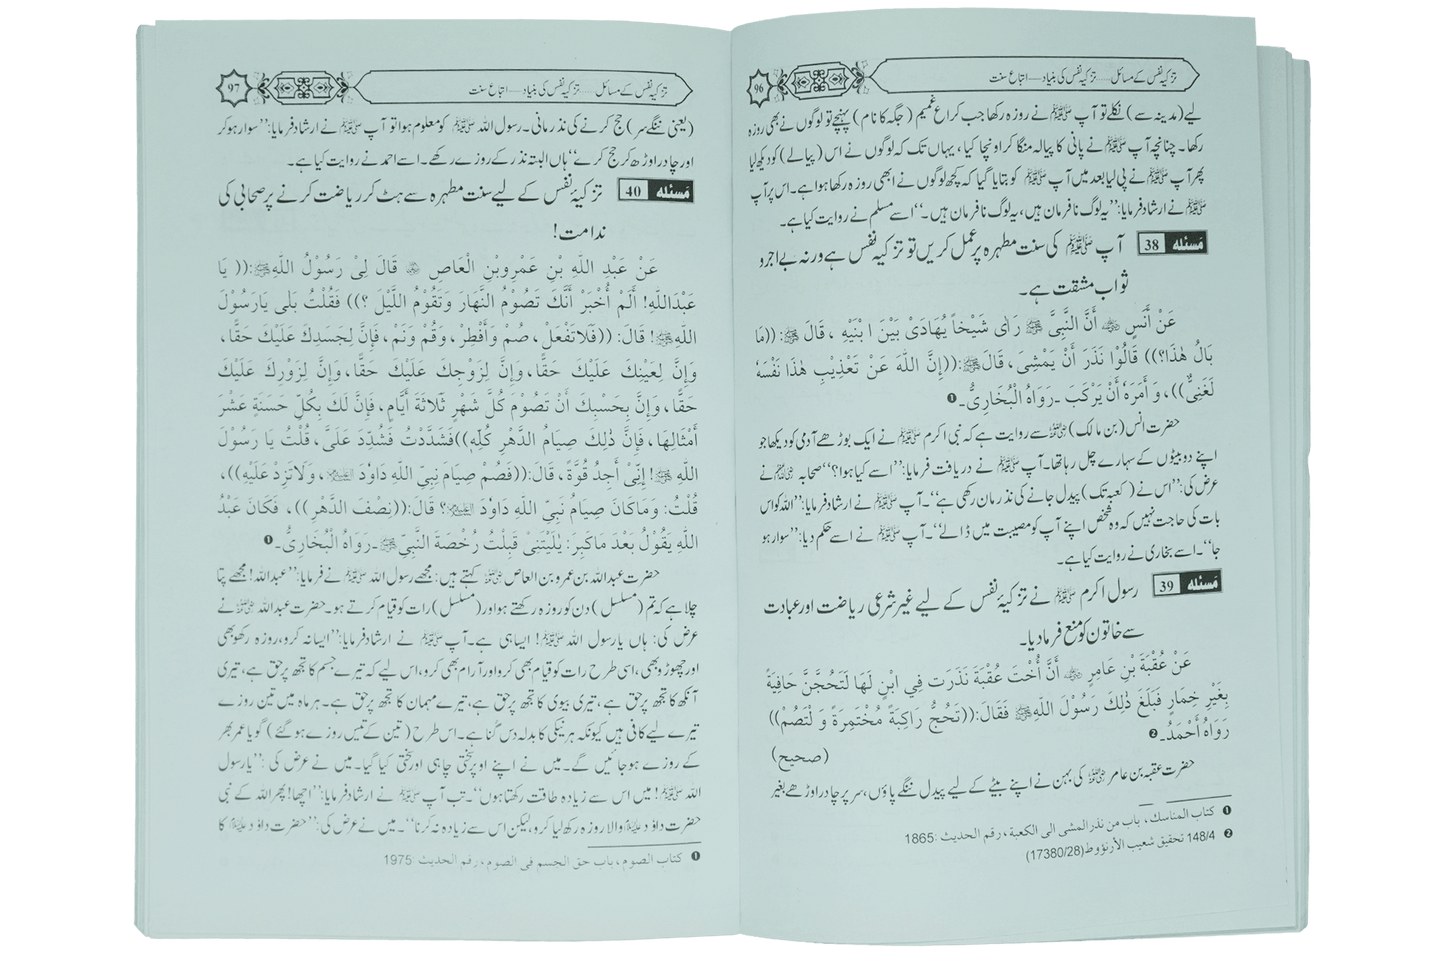 96
تزکیۂ نفس کے مسائل ..... تزکیۂ نفس کی بنیاد — اتباع سنت
لیے (مدینہ سے) نکلے تو آپ ﷺ نے روزہ رکھا جب کراع غمیم (جگہ کا نام) پہنچے تو لوگوں نے بھی روزہ
رکھا۔ چنانچہ آپ ﷺ نے پانی کا پیالہ منگا کر اونچا کیا، یہاں تک کہ لوگوں نے اس (پیالے) کو دیکھ لیا
پھر آپ ﷺ نے پی لیا بعد میں آپ ﷺ کو بتایا گیا کہ کچھ لوگوں نے ابھی روزہ رکھا ہوا ہے۔ اس پر آپ
ﷺ نے ارشاد فرمایا: ”یہ لوگ نافرمان ہیں، یہ لوگ نافرمان ہیں۔“ اسے مسلم نے روایت کیا ہے۔
مَسئلہ 38 آپ ﷺ کی سنت مطہرہ پر عمل کریں تو تزکیۂ نفس ہے ورنہ بے اجر و
ثواب مشقت ہے۔
عَنْ أَنَسٍ ﷜ أَنَّ النَّبِیَّ ﷺ رَاٰی شَیْخاً یُهَادَیٰ بَیْنَ ابْنَیْهِ، قَالَ ﷺ:((مَا
بَالُ هٰذَا؟)) قَالُوْا نَذَرَ أَنْ یَمْشِیَ، قَالَ ﷺ:((إِنَّ اللّٰهَ عَنْ تَعْذِیْبِ هٰذَا نَفْسَهٗ
لَغَنِیٌّ))، وَ أَمَرَهٗ أَنْ یَرْکَبَ ۔رَوَاهُ الْبُخَارِیُّ۔❶
حضرت انس (بن مالک) ﷜ سے روایت ہے کہ نبی اکرم ﷺ نے ایک بوڑھے آدمی کو دیکھا جو
اپنے دو بیٹوں کے سہارے چل رہا تھا۔ آپ ﷺ نے دریافت فرمایا: ”اسے کیا ہوا؟“ صحابہ ﷢ نے
عرض کی: ”اس نے (کعبہ تک) پیدل جانے کی نذر مان رکھی ہے“۔ آپ ﷺ نے ارشاد فرمایا: ”اللہ کو اس
بات کی حاجت نہیں کہ وہ شخص اپنے آپ کو مصیبت میں ڈالے“۔ آپ ﷺ نے اسے حکم دیا: ”سوار ہو
جا“۔ اسے بخاری نے روایت کیا ہے۔
مَسئلہ 39 رسول اکرم ﷺ نے تزکیۂ نفس کے لیے غیر شرعی ریاضت اور عبادت
سے خاتون کو منع فرما دیا۔
عَنْ عُقْبَةَ بْنِ عَامِرٍ ﷜ أَنَّ أُخْتَ عُقْبَةَ نَذَرَت فِي ابْنٍ لَهَا لَتَحُجَّنَّ حَافِیَةً
بِغَیْرِ خِمَارٍ فَبَلَغَ ذٰلِكَ رَسُوْلَ اللّٰهِ ﷺ فَقَالَ:((تَحُجُّ رَاکِبَةً مُخْتَمِرَةً وَ لْتَصُمْ))
رَوَاهُ أَحْمَدُ۔❷ (صحیح)
حضرت عقبہ بن عامر ﷜ کی بہن نے اپنے بیٹے کے لیے پیدل ننگے پاؤں، سر پر چادر اوڑھے بغیر
❶ کتاب المناسك، باب من نذر المشی الی الکعبة، رقم الحدیث :1865
❷ 148/4 تحقیق شعیب الأرنؤوط(17380/28)
97
تزکیۂ نفس کے مسائل ..... تزکیۂ نفس کی بنیاد — اتباع سنت
(یعنی ننگے سر) حج کرنے کی نذر مانی۔ رسول اللہ ﷺ کو معلوم ہوا تو آپ ﷺ نے ارشاد فرمایا: ”سوار ہو کر
اور چادر اوڑھ کر حج کرے“ ہاں البتہ نذر کے روزے رکھے۔ اسے احمد نے روایت کیا ہے۔
مَسئلہ 40 تزکیۂ نفس کے لیے سنت مطہرہ سے ہٹ کر ریاضت کرنے پر صحابی کی
ندامت!
عَنْ عَبْدِ اللّٰهِ بْنِ عَمْرِوبْنِ الْعَاصِ ﷜ قَالَ لِیْ رَسُوْلُ اللّٰهِ ﷺ:(( یَا
عَبْدَاللّٰهِ! أَلَمْ أُخْبَرْ أَنَّكَ تَصُوْمُ النَّهَارَ وَتَقُوْمُ اللَّیْلَ ؟)) فَقُلْتُ بَلٰی یَارَسُوْلَ
اللّٰهِ ﷺ! قَالَ: ((فَلَاتَفْعَلْ، صُمْ وَأَفْطِرْ، وَقُمْ وَنَمْ، فَإِنَّ لِجَسَدِكَ عَلَیْكَ حَقًّا،
وَإِنَّ لِعَیْنِكَ عَلَیْكَ حَقًّا، وَإِنَّ لِزَوْجِكَ عَلَیْكَ حَقًّا، وَإِنَّ لِزَوْرِكَ عَلَیْكَ
حَقًّا، وَإِنَّ بِحَسْبِكَ أَنْ تَصُوْمَ كُلَّ شَهْرٍ ثَلاثَةَ أَیَّامٍ، فَإِنَّ لَكَ بِكُلِّ حَسَنَةٍ عَشْرَ
أَمْثَالِهَا، فَإِنَّ ذٰلِكَ صِیَامُ الدَّهْرِ كُلِّهٖ))فَشَدَّدْتُ فَشُدِّدَ عَلَیَّ، قُلْتُ یَا رَسُوْلَ
اللّٰهِ ﷺ! إِنِّیْ أَجِدُ قُوَّةً، قَالَ:((فَصُمْ صِیَامَ نَبِیِّ اللّٰهِ دَاوٗدَ، وَلَاتَزِدْ عَلَیْهِ))،
قُلْتُ: وَمَاکَانَ صِیَامُ نَبِیِّ اللّٰهِ دَاوٗدَ؟ قَالَ:((نِصْفَ الدَّهْرِ))، فَکَانَ عَبْدُ
اللّٰهِ یَقُوْلُ بَعْدَ مَاکَبِرَ: یٰلَیْتَنِیْ قَبِلْتُ رُخْصَةَ النَّبِیِّ ﷺ۔رَوَاهُ الْبُخَارِیُّ۔❶
حضرت عبداللہ بن عمرو بن العاص ﷜ کہتے ہیں: مجھے رسول اللہ ﷺ نے فرمایا: ”عبداللہ! مجھے پتا
چلا ہے کہ تم (مسلسل) دن کو روزہ رکھتے ہو اور (مسلسل) رات کو قیام کرتے ہو۔ حضرت عبداللہ ﷜ نے
عرض کی: ہاں یا رسول اللہ ﷺ! ایسا ہی ہے۔ آپ ﷺ نے ارشاد فرمایا: ”ایسا نہ کرو، روزہ رکھو بھی
اور چھوڑو بھی، اسی طرح رات کو قیام بھی کرو اور آرام بھی کرو، اس لیے کہ تیرے جسم کا تجھ پر حق ہے، تیری
آنکھ کا تجھ پر حق ہے، تیری بیوی کا تجھ پر حق ہے، تیرے مہمان کا تجھ پر حق ہے۔ ہر ماہ میں تین روزے
تیرے لیے کافی ہیں کیونکہ ہر نیکی کا بدلہ دس گنا ہے۔ اس طرح (تین کے تیس روزے ہو گئے) گویا عمر بھر
کے روزے ہو جائیں گے۔ میں نے اپنے اوپر سختی چاہی اور سختی کیا گیا۔ میں نے عرض کی: ”یا رسول
اللہ ﷺ! میں اس سے زیادہ طاقت رکھتا ہوں“۔ تب آپ ﷺ نے ارشاد فرمایا: ”اچھا! پھر اللہ کے نبی
حضرت داؤد والا روزہ رکھ لیا کرو، لیکن اس سے زیادہ نہ کرنا“۔ میں نے عرض کی: ”حضرت داؤد کا
❶ کتاب الصوم، باب حق الجسم فی الصوم، رقم الحدیث :1975